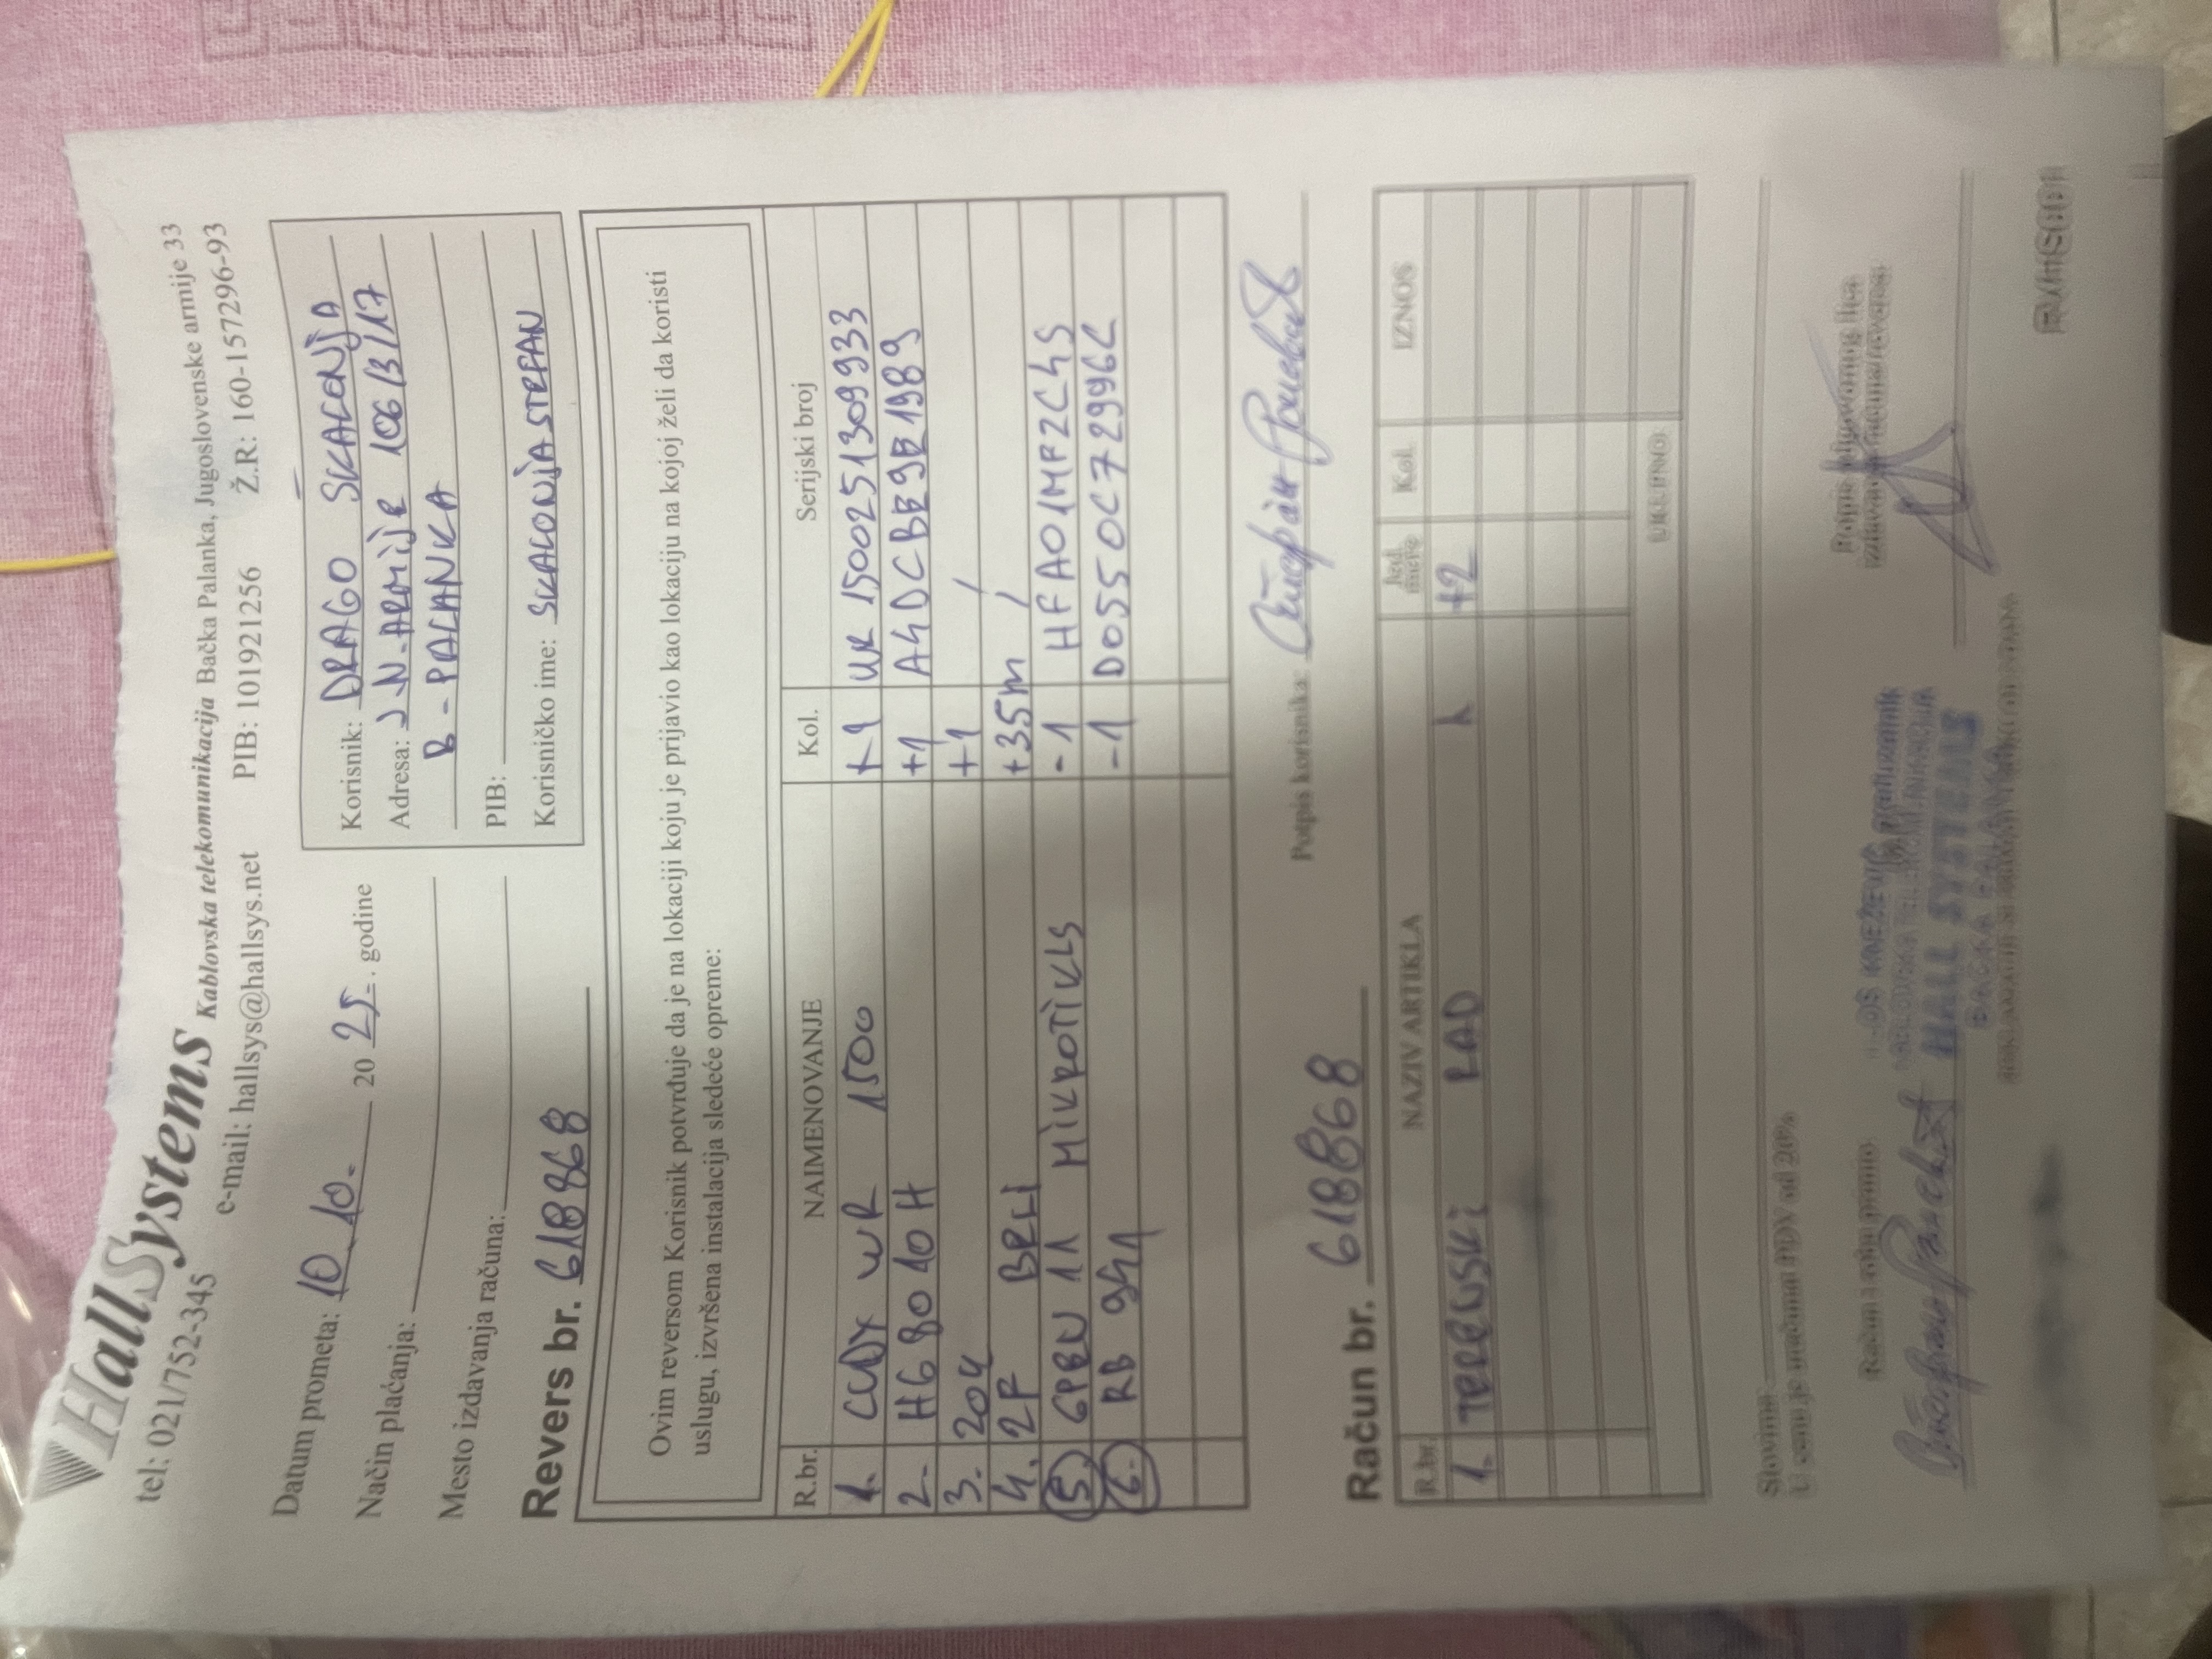 HallSystems Kablovska telekomunikacija Bačka Palanka, Jugoslovenske armije 33
tel: 021/752-345 e-mail: hallsys@hallsys.net PIB: 101921256 Ž.R: 160-157296-93
Datum prometa: 10. 10. 2025. godine
Način plaćanja:
Mesto izdavanja računa:
Korisnik: DRAGO SKALONJA
Adresa: J.N. ARMIJE 106/3/17
B-PALANKA
PIB:
Korisničko ime: SKALONJASTEFAN
Revers br. 618868
Ovim reversom Korisnik potvrđuje da je na lokaciji koju je prijavio kao lokaciju na kojoj želi da koristi
uslugu, izvršena instalacija sledeće opreme:
R.br. NAIMENOVANJE Kol. Serijski broj
1. CUDY WR 1500 +1 WR1500251309933
2. HG8010H +1 A4DCBE9B1989
3. 204 +1 /
4. 2F BELI +35m /
5. GPEN 11 MIKROTIKLS -1 HFA01MPZC4S
6. RB 941 -1 D0550C72996C
Potpis korisnika:
Račun br. 618868
R.br. NAZIV ARTIKLA Jed. mere Kol. IZNOS
1. TERENSKI RAD
UKUPNO:
Slovima:
U cenu je uračunat PDV od 20%
Račun i robu primio
HALL SYSTEMS
BAČKA PALANKA